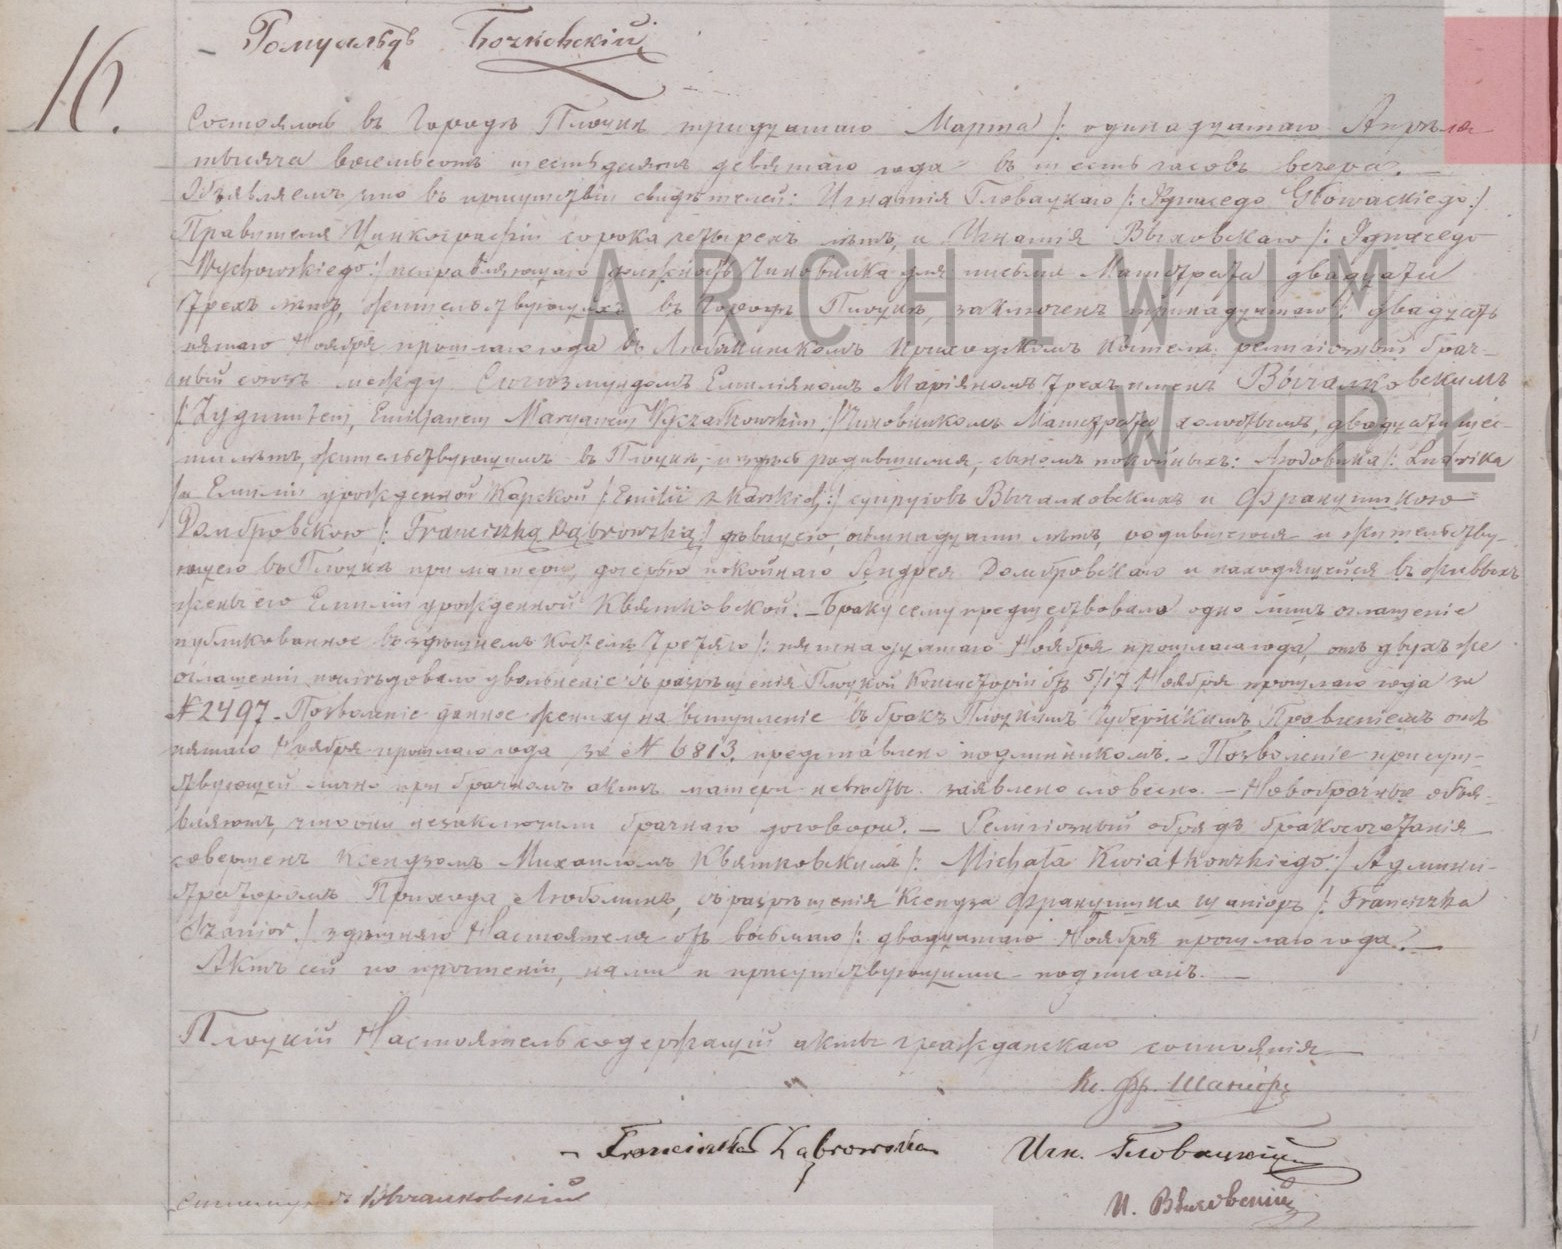 Ромуальдъ Бочковскій
16.
Состоялось въ Городѣ Плоцкѣ тридцатаго Марта /: одинадцатаго Апрѣля
тысяча восемьсотъ шестьдесятъ девятаго года въ шесть часовъ вечера. —
Объявляемъ что въ присутствіи свидѣтелей: Игнатія Гловацкаго /: Ignacego Głowackiego :/
Правителя Цинкографіи сорока четырехъ лѣтъ, и Игнатія Выховскаго /: Ignacego
Wychowskiego :/ исправляющаго должность Чиновника для письма Магистрата двадцати
трехъ лѣтъ, жительствующихъ въ Городѣ Плоцкѣ, заключенъ тринадцатаго /: двадцать
пятаго Ноября прошлаго года въ Приходскомъ костелѣ религіозный брач-
ный союзъ между Сигизмундомъ Емиліяномъ Маріяномъ трехъ именъ Вычалковскимъ
/: Zygmuntem, Emiljanem Maryanem Wyczałkowskim :/ Чиновникомъ Магистрата холостымъ, двадцати шес-
ти лѣтъ, жительствующимъ въ Плоцкѣ, и здѣсь родившимся, сыномъ покойныхъ: Людовика /: Ludwika
и Емиліи урожденной Карской /: Emilii z Karskich :/ супруговъ Вычалковскихъ и Францишкою
Домбровскою /: Franciszką Dąbrowską :/ дѣвицею, лѣтъ, родившеюся и жительству-
ющею въ Плоцкѣ при матери, дочерью покойнаго Андрея Домбровскаго и находящейся въ живыхъ
жены его Емиліи урожденной Квятковской. — Браку сему предшествовало одно лишь оглашеніе
публикованное въ здѣшнемъ костелѣ третяго /: пятнадцатаго Ноября прошлаго года, отъ двухъ же
оглашеній послѣдовало увольненіе съ разрѣшенія Плоцкой Консисторіи отъ 5/17 Ноября прошлаго года за
№ 2497. Позволеніе данное жениху на вступленіе въ бракъ Плоцкимъ Губернскимъ Правленіемъ отъ
пятаго Ноября прошлаго года за № 6813. представлено подлинникомъ. — Позволеніе присут-
ствующей лично при брачномъ актѣ матери невѣсты заявлено словесно. — Новобрачные объя-
вляютъ, что они незаключили брачнаго договора. — Религіозный обрядъ бракосочетанія
совершенъ Ксендзомъ Михаиломъ Квятковскимъ /: Michała Kwiatkowskiego :/ Админи-
страторомъ Прихода съ разрѣшенія Ксендза Францишка Шаніоръ /: Franciszka
Szanior :/ здѣшняго Настоятеля отъ восьмаго /: двадцатаго Ноября прошлаго года. —
Актъ сей по прочтеніи, нами и присутствующими подписанъ. —
Плоцкій Настоятель содержащій акты гражданскаго состоянія —
Кс. Фр. Шаніоръ
Franciszka Dąbrowska Игн. Гловацкій
Сигизмундъ Вычалковскій И. Выховскій
ARCHIWUM
W PŁ